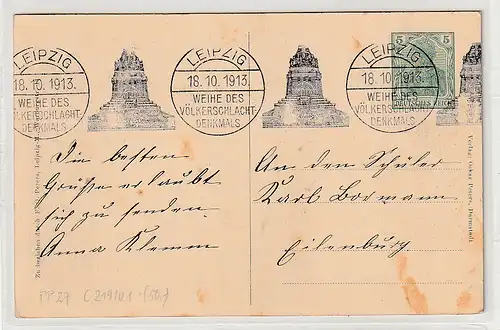 LEIPZIG
18.10.1913.
WEIHE DES
VÖLKERSCHLACHT-
DENKMALS
LEIPZIG
18.10.1913.
WEIHE DES
VÖLKERSCHLACHT-
DENKMALS
LEIPZIG
18.10.1913.
WEIHE DES
VÖLKERSCHLACHT-
DENKMALS
5 5
DEUTSCHES REICH
Die besten
Grüße erlaubt
sich zu senden
Anna Klemm
An den Schüler
Karl Bormann
Eilenburg
Zu beziehen durch Peters, Leipzig
Verlag Oskar Peters, Darmstadt.
PP 27 C 219/01